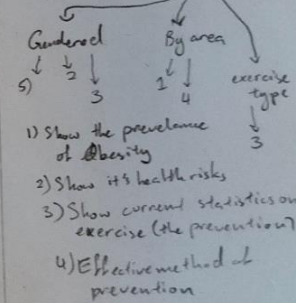 Gendered
By area
5) 2
3
1
4
exercise
type
3
1) Show the prevelance
of Obesity
2) Show it's health risks
3) Show current statistics on
exercise (the prevention)
4) Effective method of
prevention